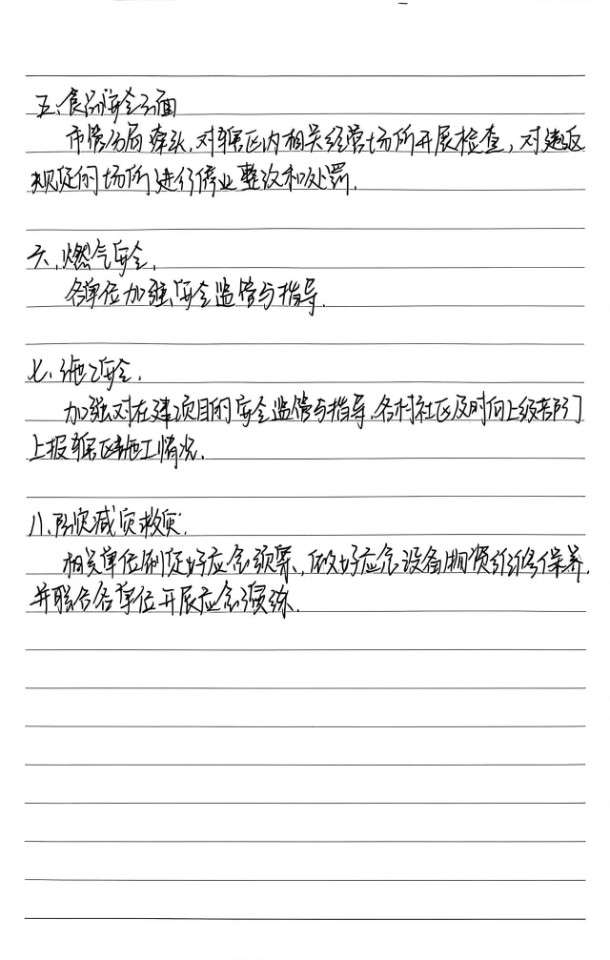 五、食品安全方面
市管分局牵头,对辖区内相关经营场所开展检查,对违反
规定的场所进行停业整改和处罚.
六、燃气安全.
各单位加强安全监管与指导.
七、施工安全.
加强对在建项目的安全监管与指导,各村社区及时向上级部门
上报辖区施工情况.
八、防灾减灾救灾.
相关单位制定好应急预案,做好应急设备物资维修保养,
并联合各单位开展应急演练.